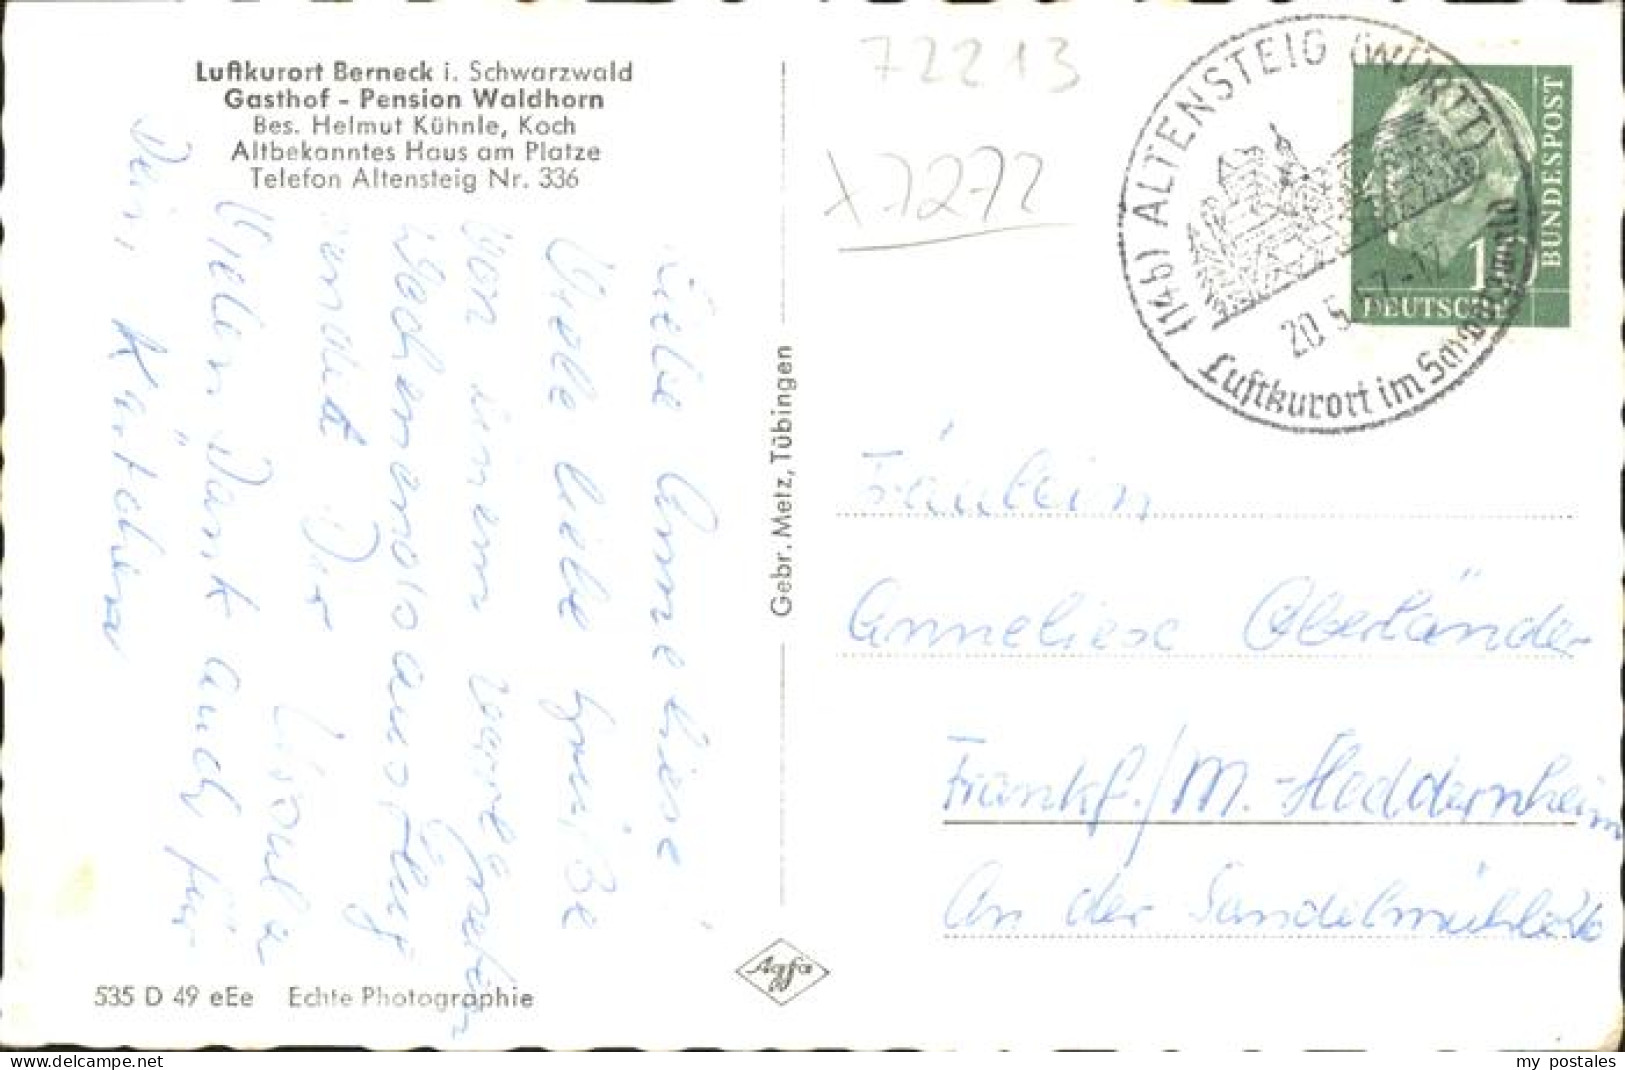 Luftkurort Berneck i. Schwarzwald
Gasthof - Pension Waldhorn
Bes. Helmut Kühnle, Koch
Altbekanntes Haus am Platze
Telefon Altensteig Nr. 336
Liebe Anneliese!
Viele liebe Grüße
von einem
Wochenendausflug
sendet Dir
Ursula
Vielen Dank auch für
Dein Kärtchen
535 D 49 eEe Echte Photographie
Gebr. Metz, Tübingen
Agfa
72213
x 7272
(14b) ALTENSTEIG (WÜRTT)
20.5.
-12
Luftkurort im Schwarzwald
DEUTSCHE
BUNDESPOST
10
Fräulein
Anneliese Oberländer
Frankf./M.-Heddernheim
An der Sandelmühle
my postales
https://www.ansichtskarten-center.de